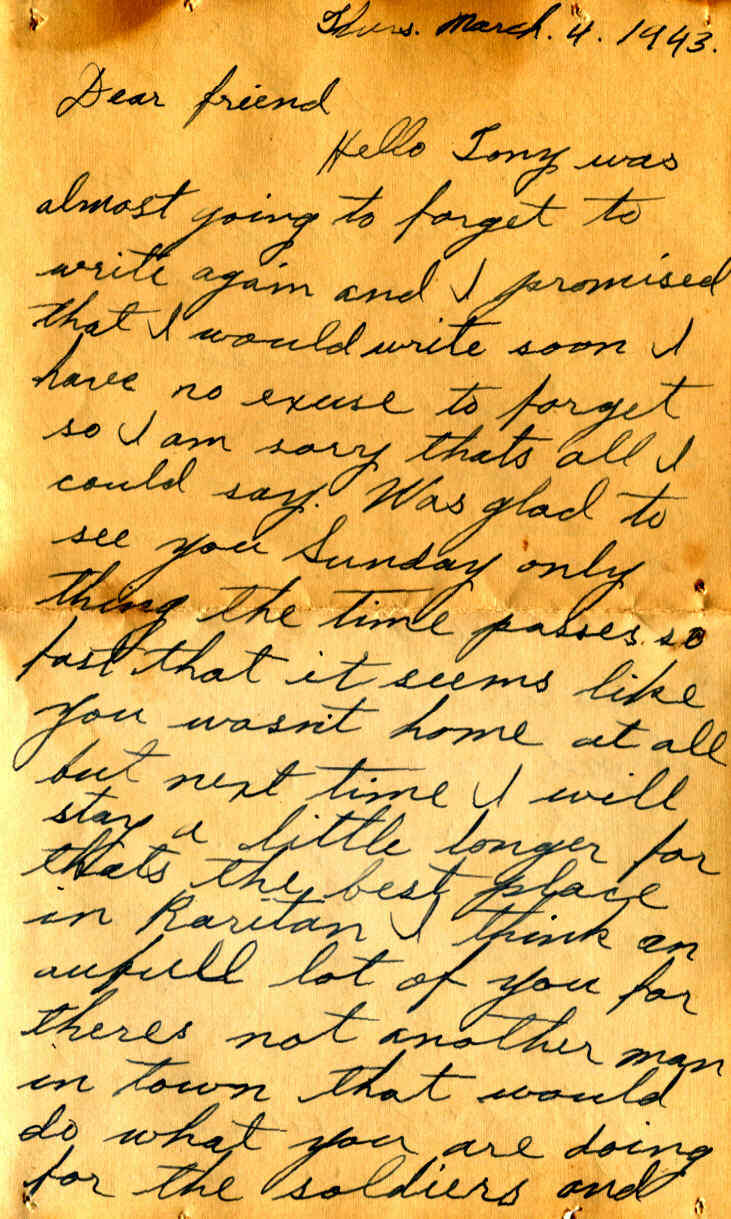 Thurs. March. 4. 1943.
Dear friend
Hello Tony was
almost going to forget to
write again and I promised
that I would write soon I
have no excuse to forget
so I am sorry thats all I
could say. Was glad to
see you Sunday only
thing the time passes so
fast that it seems like
you wasn't home at all
but next time I will
stay a little longer for
thats the best place
in Raritan I think an
aufull lot of you for
theres not another man
in town that would
do what you are doing
for the soldiers and